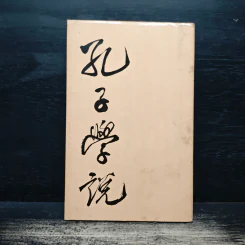 孔子學說